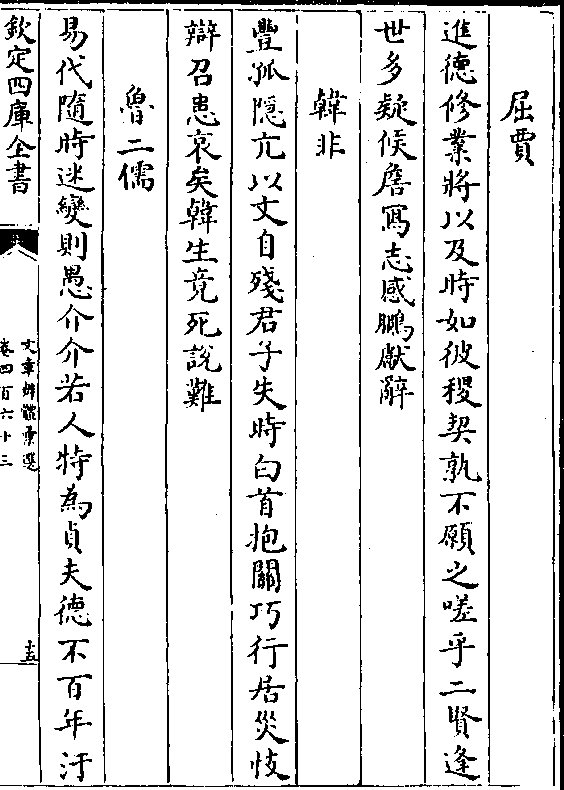 屈賈
進德修業將以及時如彼稷契孰不願之嗟乎二賢逢
世多疑候詹寫志感鵩獻辭
韓非
豐狐隱穴以文自殘君子失時白首抱關巧行居災忮
辯召患哀矣韓生竟死說難
魯二儒
易代隨時迷變則愚介介若人特為貞夫德不百年汙
欽定四庫全書
文章辨體彙選
卷四百六十三
十五